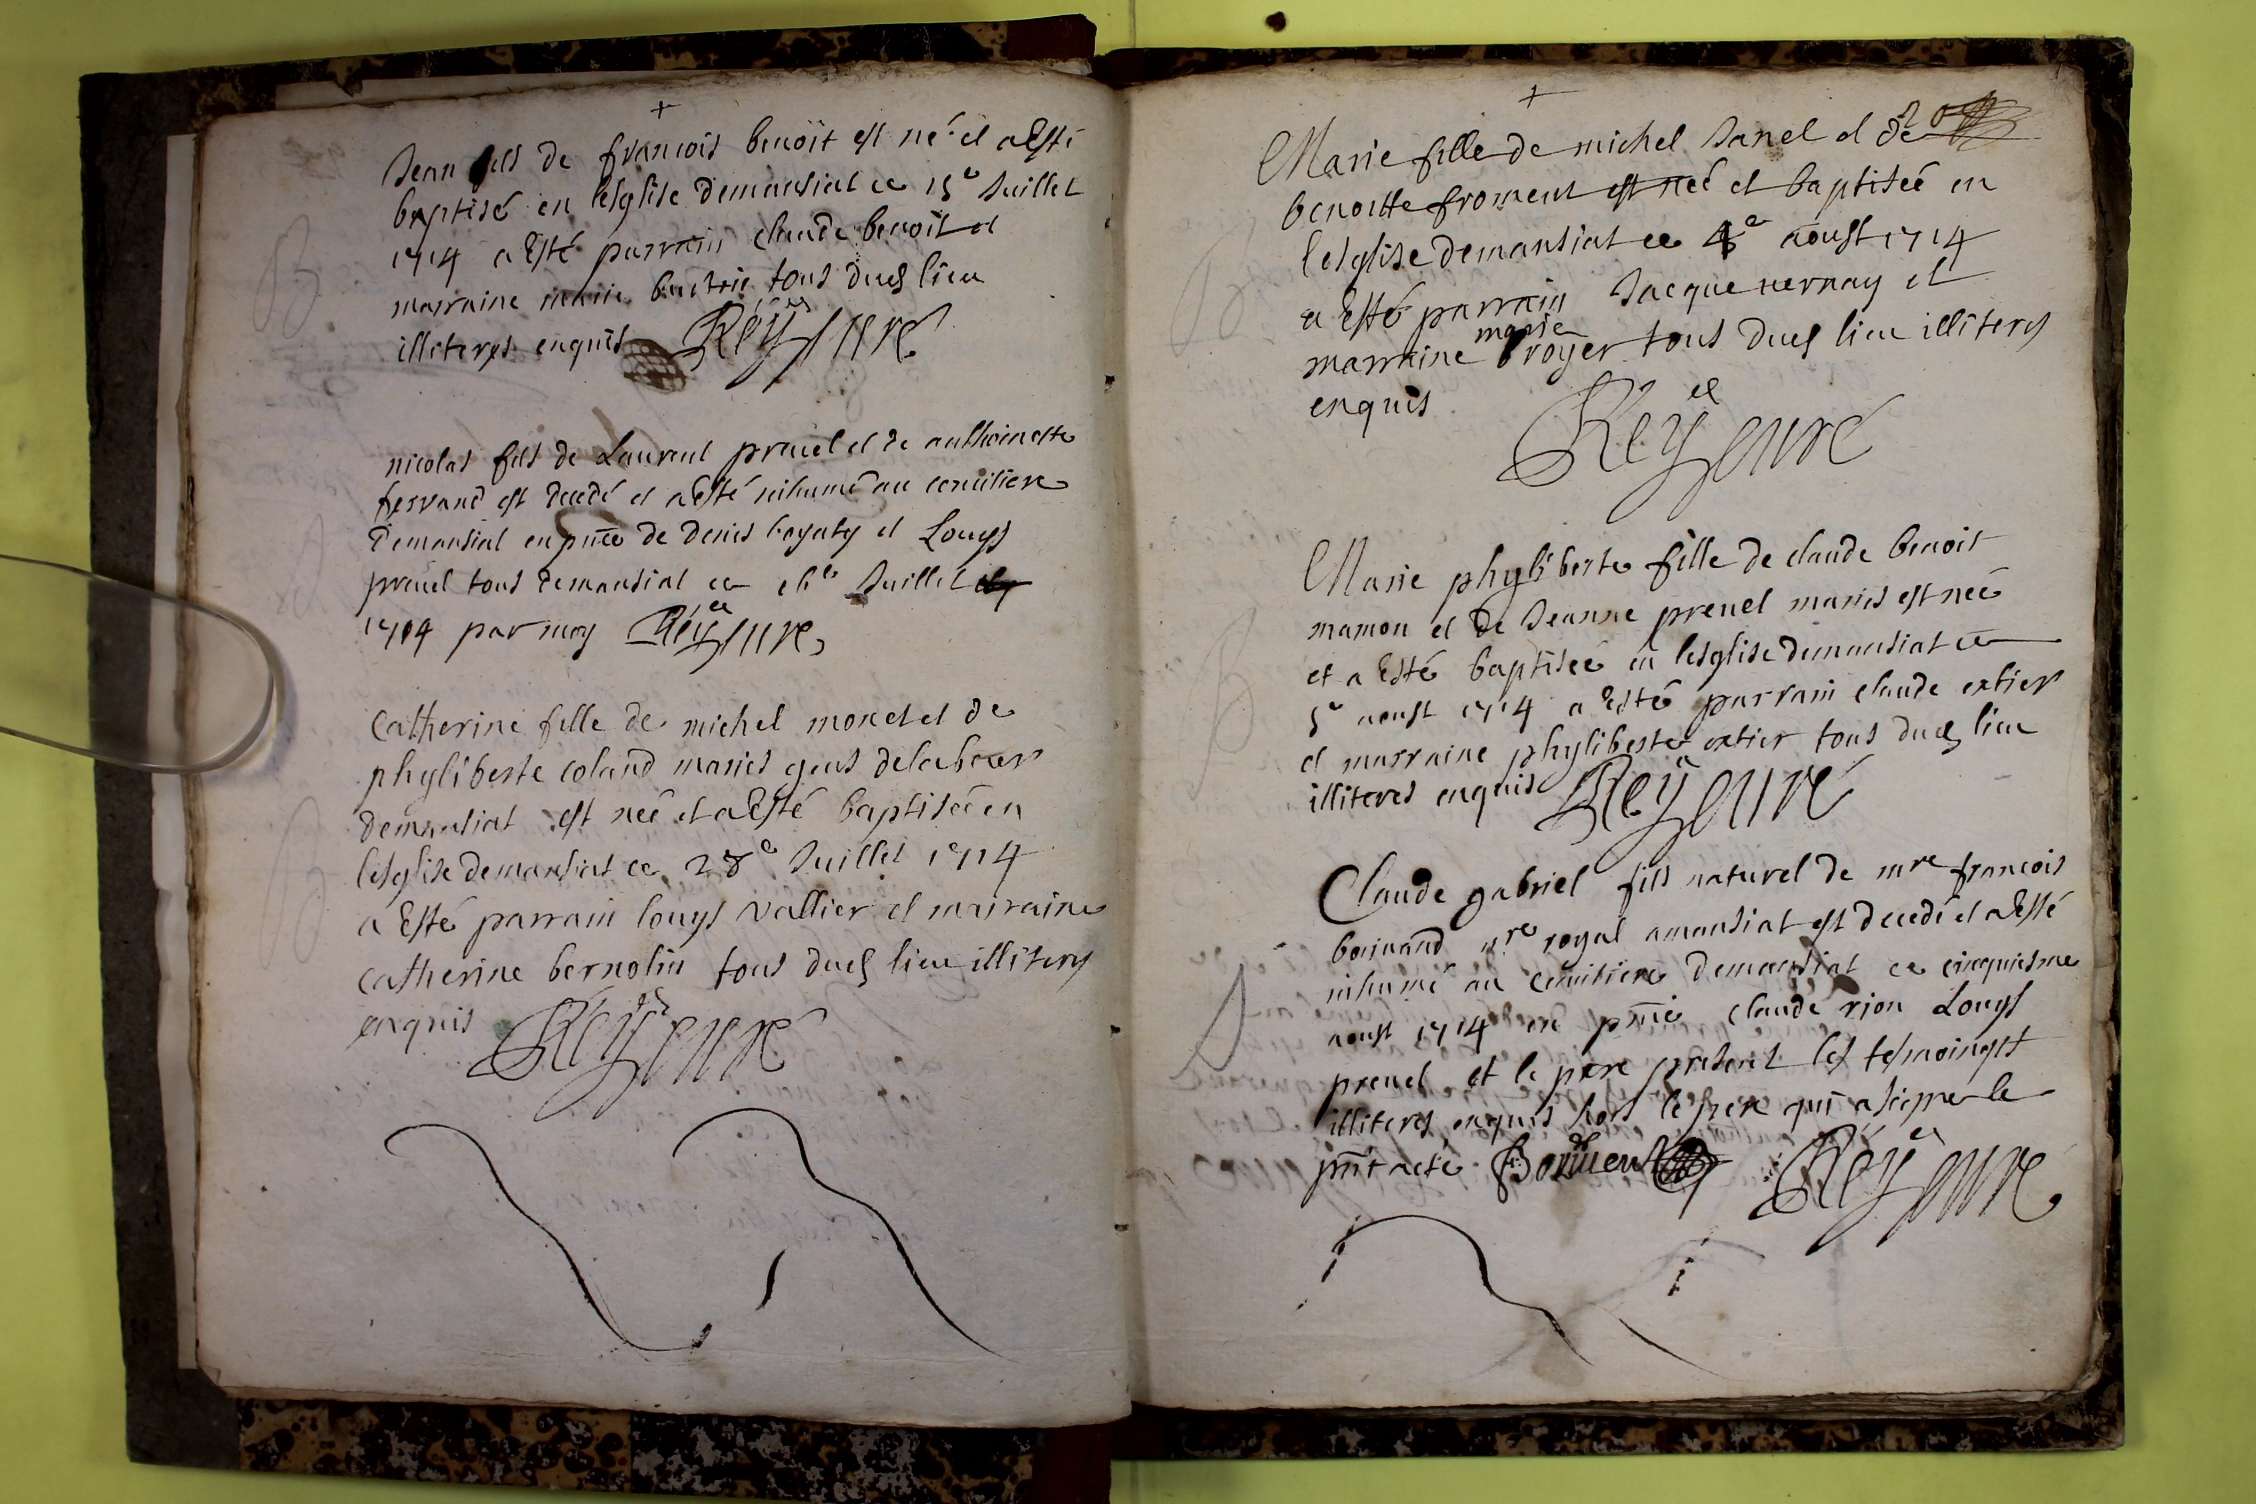 +
Jean fils de francois benoit est né et a esté
B
baptisé en lesglise demansiat ce 15e Juillet
1714 a esté parrain claude benoit et
marraine marie tous dud lieu
illiteres enquis Réÿ curé
nicolas fils de Laurent preuel et de anthoinette
ferrand est decedé et a esté inhumé au cemitiere
demansiat en pnce de denis et Louys
preuel tous demansiat ce Juillet
1714 par moy Réÿ curé
Catherine fille de michel monet et de
phyliberte coland mariés gens de labeur
B
demansiat est neé et a esté baptiseé en
lesglise demansiat ce 28e Juillet 1714
a esté parrain louys vallier et marraine
catherine bernolin tous dud lieu illiteres
enquis Réÿ curé
+
Marie fille de michel Janel et de
B
benoitte froment est neé et baptiseé en
lesglise demansiat ce 4e aoust 1714
a esté parrain Jacque nernay et
marie
marraine broyer tous dud lieu illiteres
enquis
Reÿ curé
Marie phyliberte fille de claude benoit
B
mamon et de Jeanne preuel mariés est neé
et a esté baptiseé en lesglise demansiat ce
5e aoust 1714 a esté parrain claude extier
et marraine phyliberte extier tous dud lieu
illiteres enquis Reÿ curé
Claude gabriel fils naturel de mre francois
boiuand nre royal amansiat est decedé et a esté
inhumé au cemitiere demansiat ce cinquiesme
aoust 1714 en pnce claude rion Louys
preuel et le pere present les tesmoings
illiteres enquis hors le pere qui a signé le
pnt acte Réÿ curé